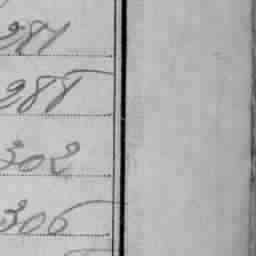 281
288
302
306